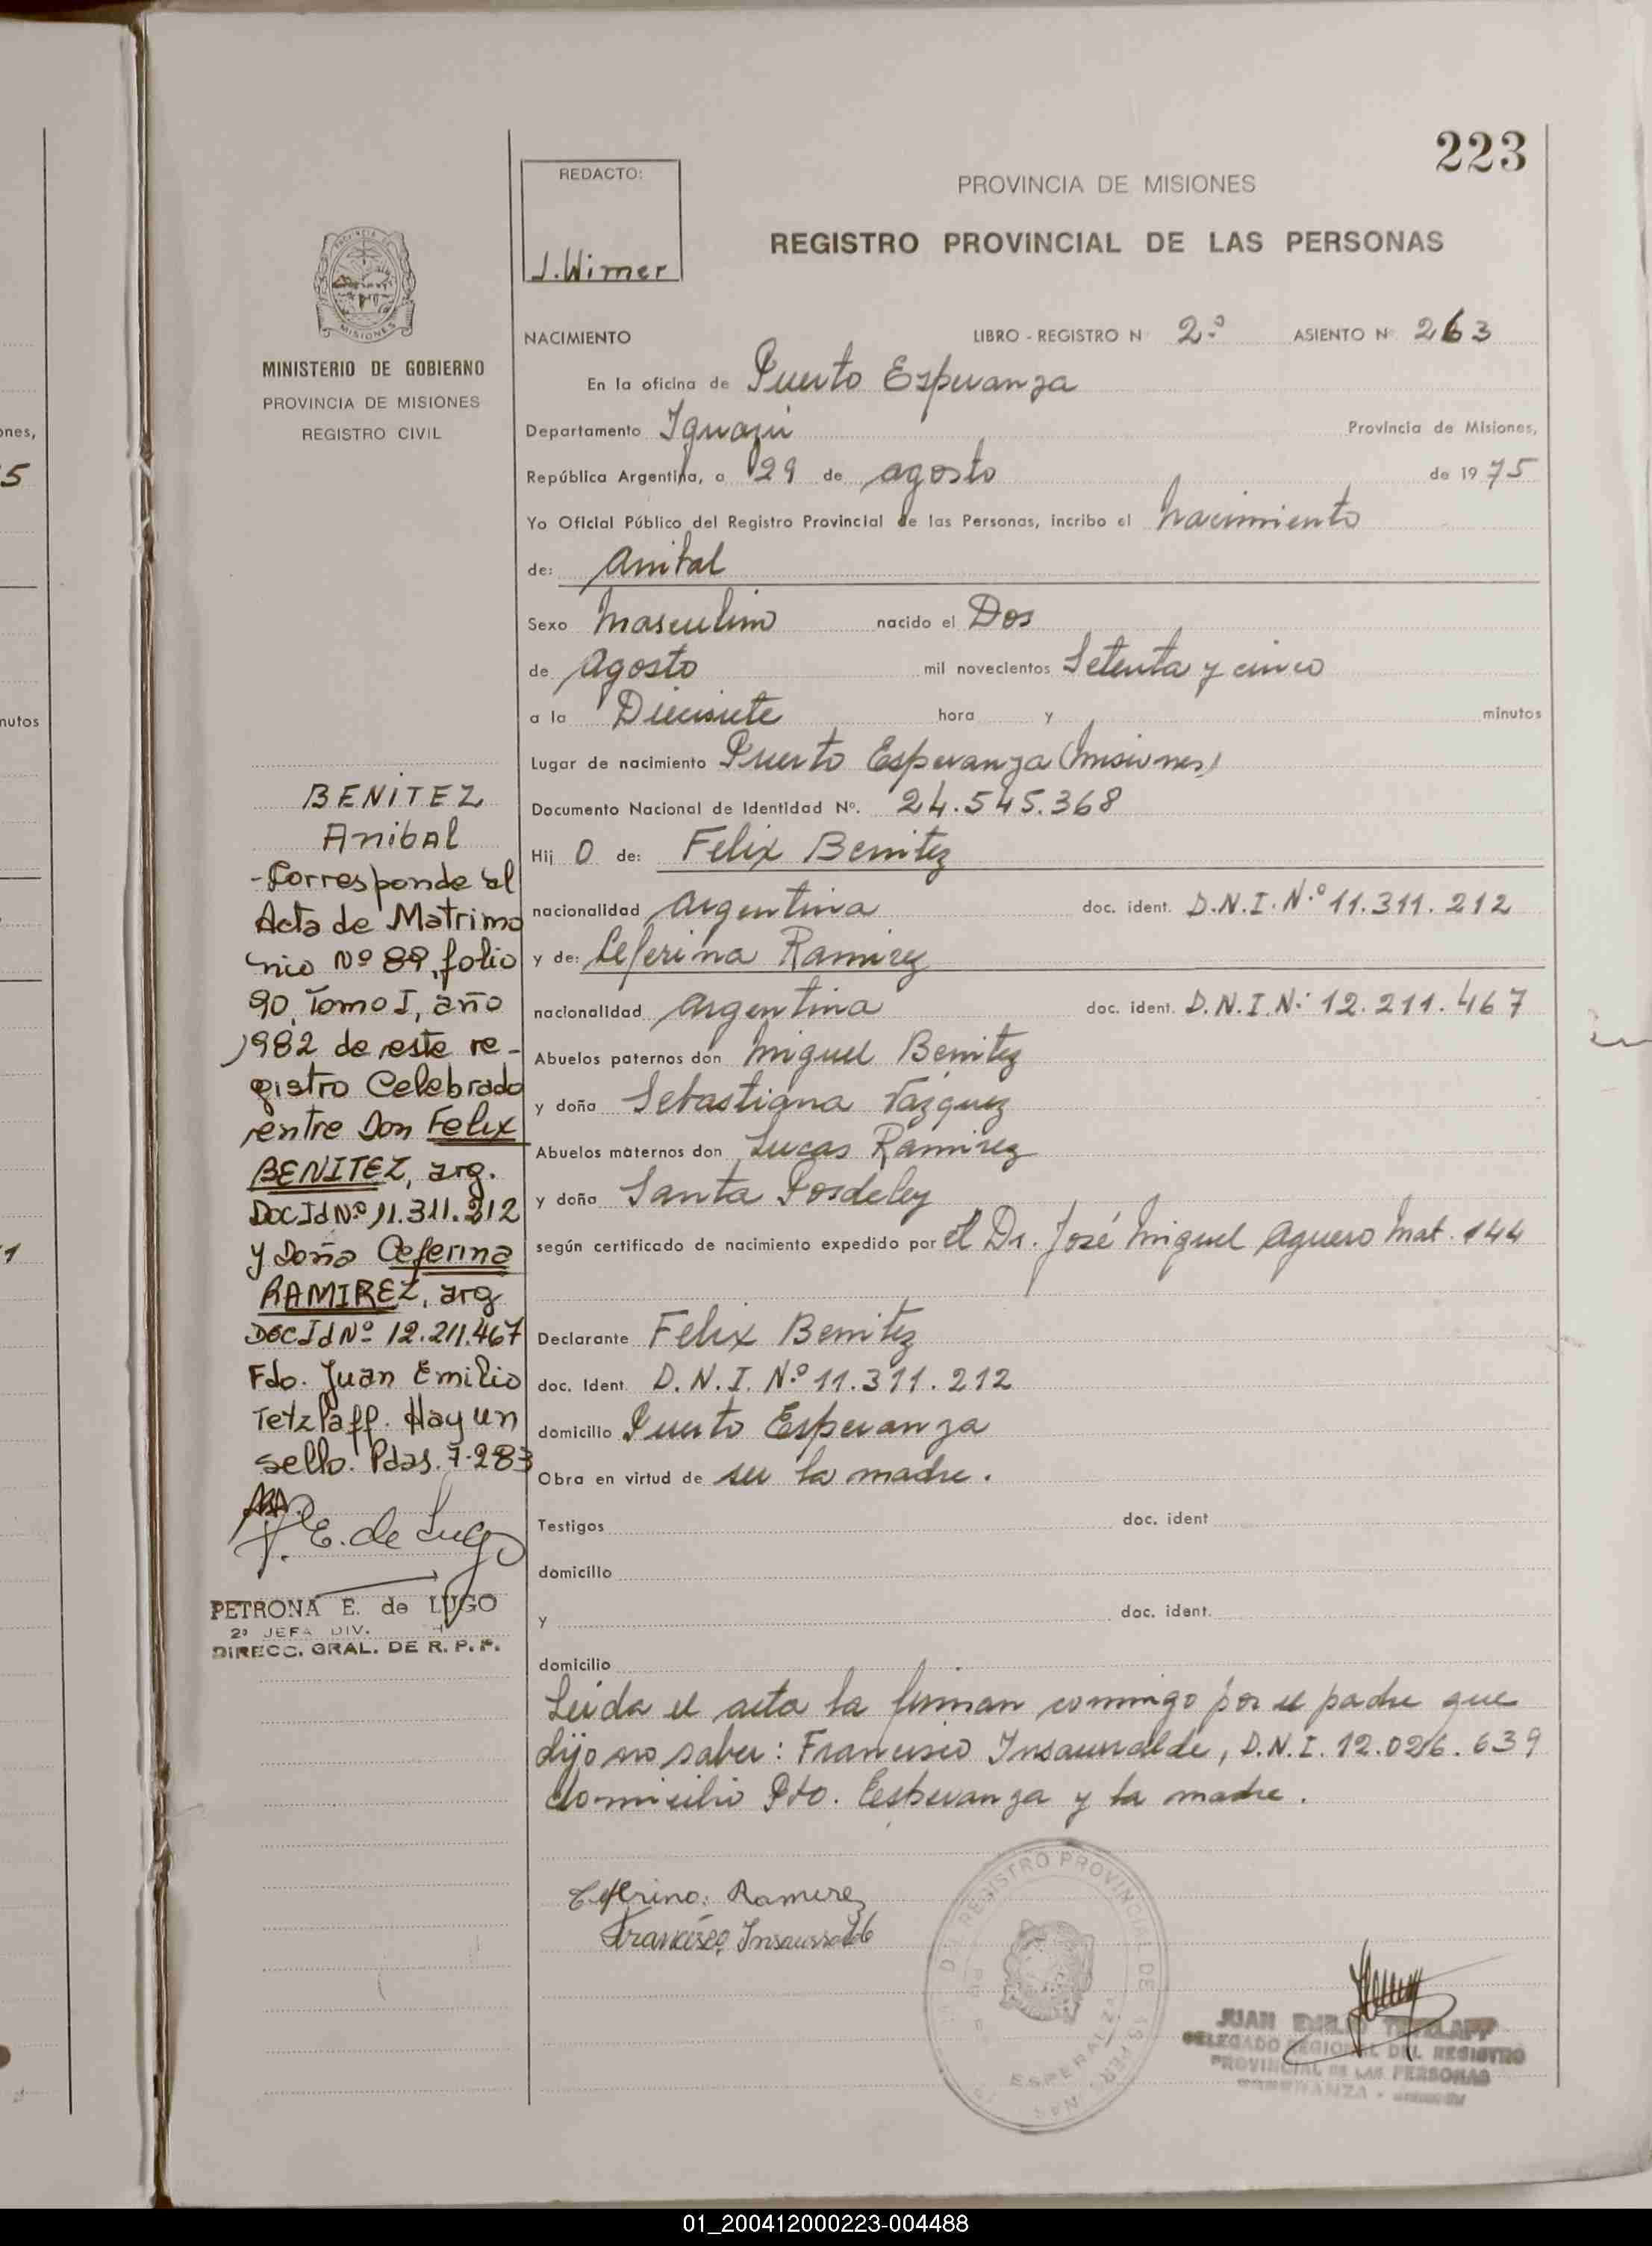 223
REDACTO:
J. Wimer
PROVINCIA DE MISIONES
REGISTRO PROVINCIAL DE LAS PERSONAS
MISIONES
MINISTERIO DE GOBIERNO
PROVINCIA DE MISIONES
REGISTRO CIVIL
NACIMIENTO LIBRO - REGISTRO N 2.º ASIENTO N 263
En la oficina de Puerto Esperanza
Departamento Iguazú Provincia de Misiones,
República Argentina, a 29 de agosto de 1975
Yo Oficial Público del Registro Provincial de las Personas, incribo el Nacimiento
de: Anibal
Sexo Masculino nacido el Dos
de Agosto mil novecientos Setenta y cinco
a la Diecisiete hora y minutos
Lugar de nacimiento Puerto Esperanza (Misiones)
Documento Nacional de Identidad Nº. 24.545.368
Hij O de: Felix Benitez
nacionalidad Argentina doc. ident. D.N.I. N.º 11.311.212
y de: Ceferina Ramirez
nacionalidad Argentina doc. ident. D.N.I.N: 12.211.467
Abuelos paternos don Miguel Benitez
y doña Sebastiana Vazquez
Abuelos maternos don Lucas Ramirez
y doña Santa Posdeley
según certificado de nacimiento expedido por el Dr. José Miguel Aguero Mat. 144
Declarante Felix Benitez
doc. Ident. D.N.I. N.º 11.311.212
domicilio Puerto Esperanza
Obra en virtud de ser la madre.
Testigos doc. ident
domicilio
y doc. ident.
domicilio
Leida el acta la firman conmigo por el padre que
dijo no saber: Francisco Insaurralde, D.N.I. 12.026.639
domicilio Pto. Esperanza y la madre.
Ceferino: Ramirez
Francisco Insaurralde
BENITEZ
Anibal
-Corresponde al
Acta de Matrimo
nio Nº 89, folio
90, Tomo I, año
1982 de este re-
gistro Celebrado
entre Don Felix
BENITEZ, arg.
Doc Id N.º 11.311.212
y Doña Ceferina
RAMIREZ, arg
Doc Id Nº 12.211.467
Fdo. Juan Emilio
Tetzlaff. Hay un
sello. Pdas. 7-2-83
P. E. de Lugo
PETRONA E. de LUGO
2ª JEFA DIV.
DIRECC. GRAL. DE R. P. P.
REGISTRO PROVINCIAL DE LAS PERSONAS
ESPERANZA
JUAN EMILIO TETZLAFF
DELEGADO REGIONAL DEL REGISTRO
PROVINCIAL DE LAS PERSONAS
ESPERANZA -
ones,
5
nutos
1
01_200412000223-004488